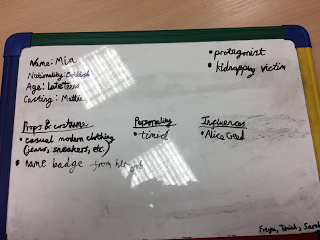 Name: Mia
Nationality: British
Age: Late teens
Casting: Mattie
• protagonist
• kidnapping victim
Props & costume
• casual modern clothing
(jeans, sneakers, etc.)
• name badge from her job
Personality
• timid
Influences
• Alice Creed
Freya, Sarah